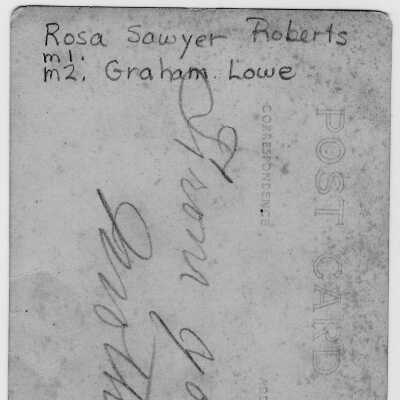 Rosa Sawyer Roberts
m1.
m2. Graham Lowe
POST CARD
CORRESPONDENCE
From yo